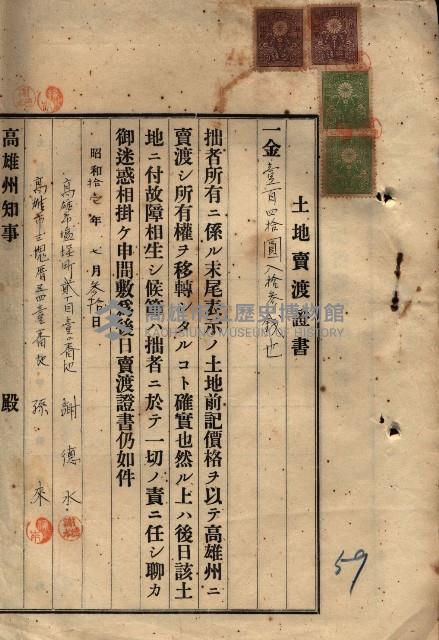 土地賣渡證書
一金壹百四拾圓八拾參錢也
拙者所有ニ係ル末尾表示ノ土地前記價格ヲ以テ高雄州ニ
賣渡シ所有權ヲ移轉シタルコト確實也然ル上ハ後日該土
地ニ付故障相生シ候節ハ拙者ニ於テ一切ノ責ニ任シ聊カ
御迷惑相掛ケ申間敷爲後日賣渡證書仍如件
昭和拾 年 七月參拾日
高雄市塩埕町貳丁目壹 番地 謝德水
高雄市 番地 孫來
高雄州知事 殿
高雄市立歷史博物館
KAOHSIUNG MUSEUM OF HISTORY
59